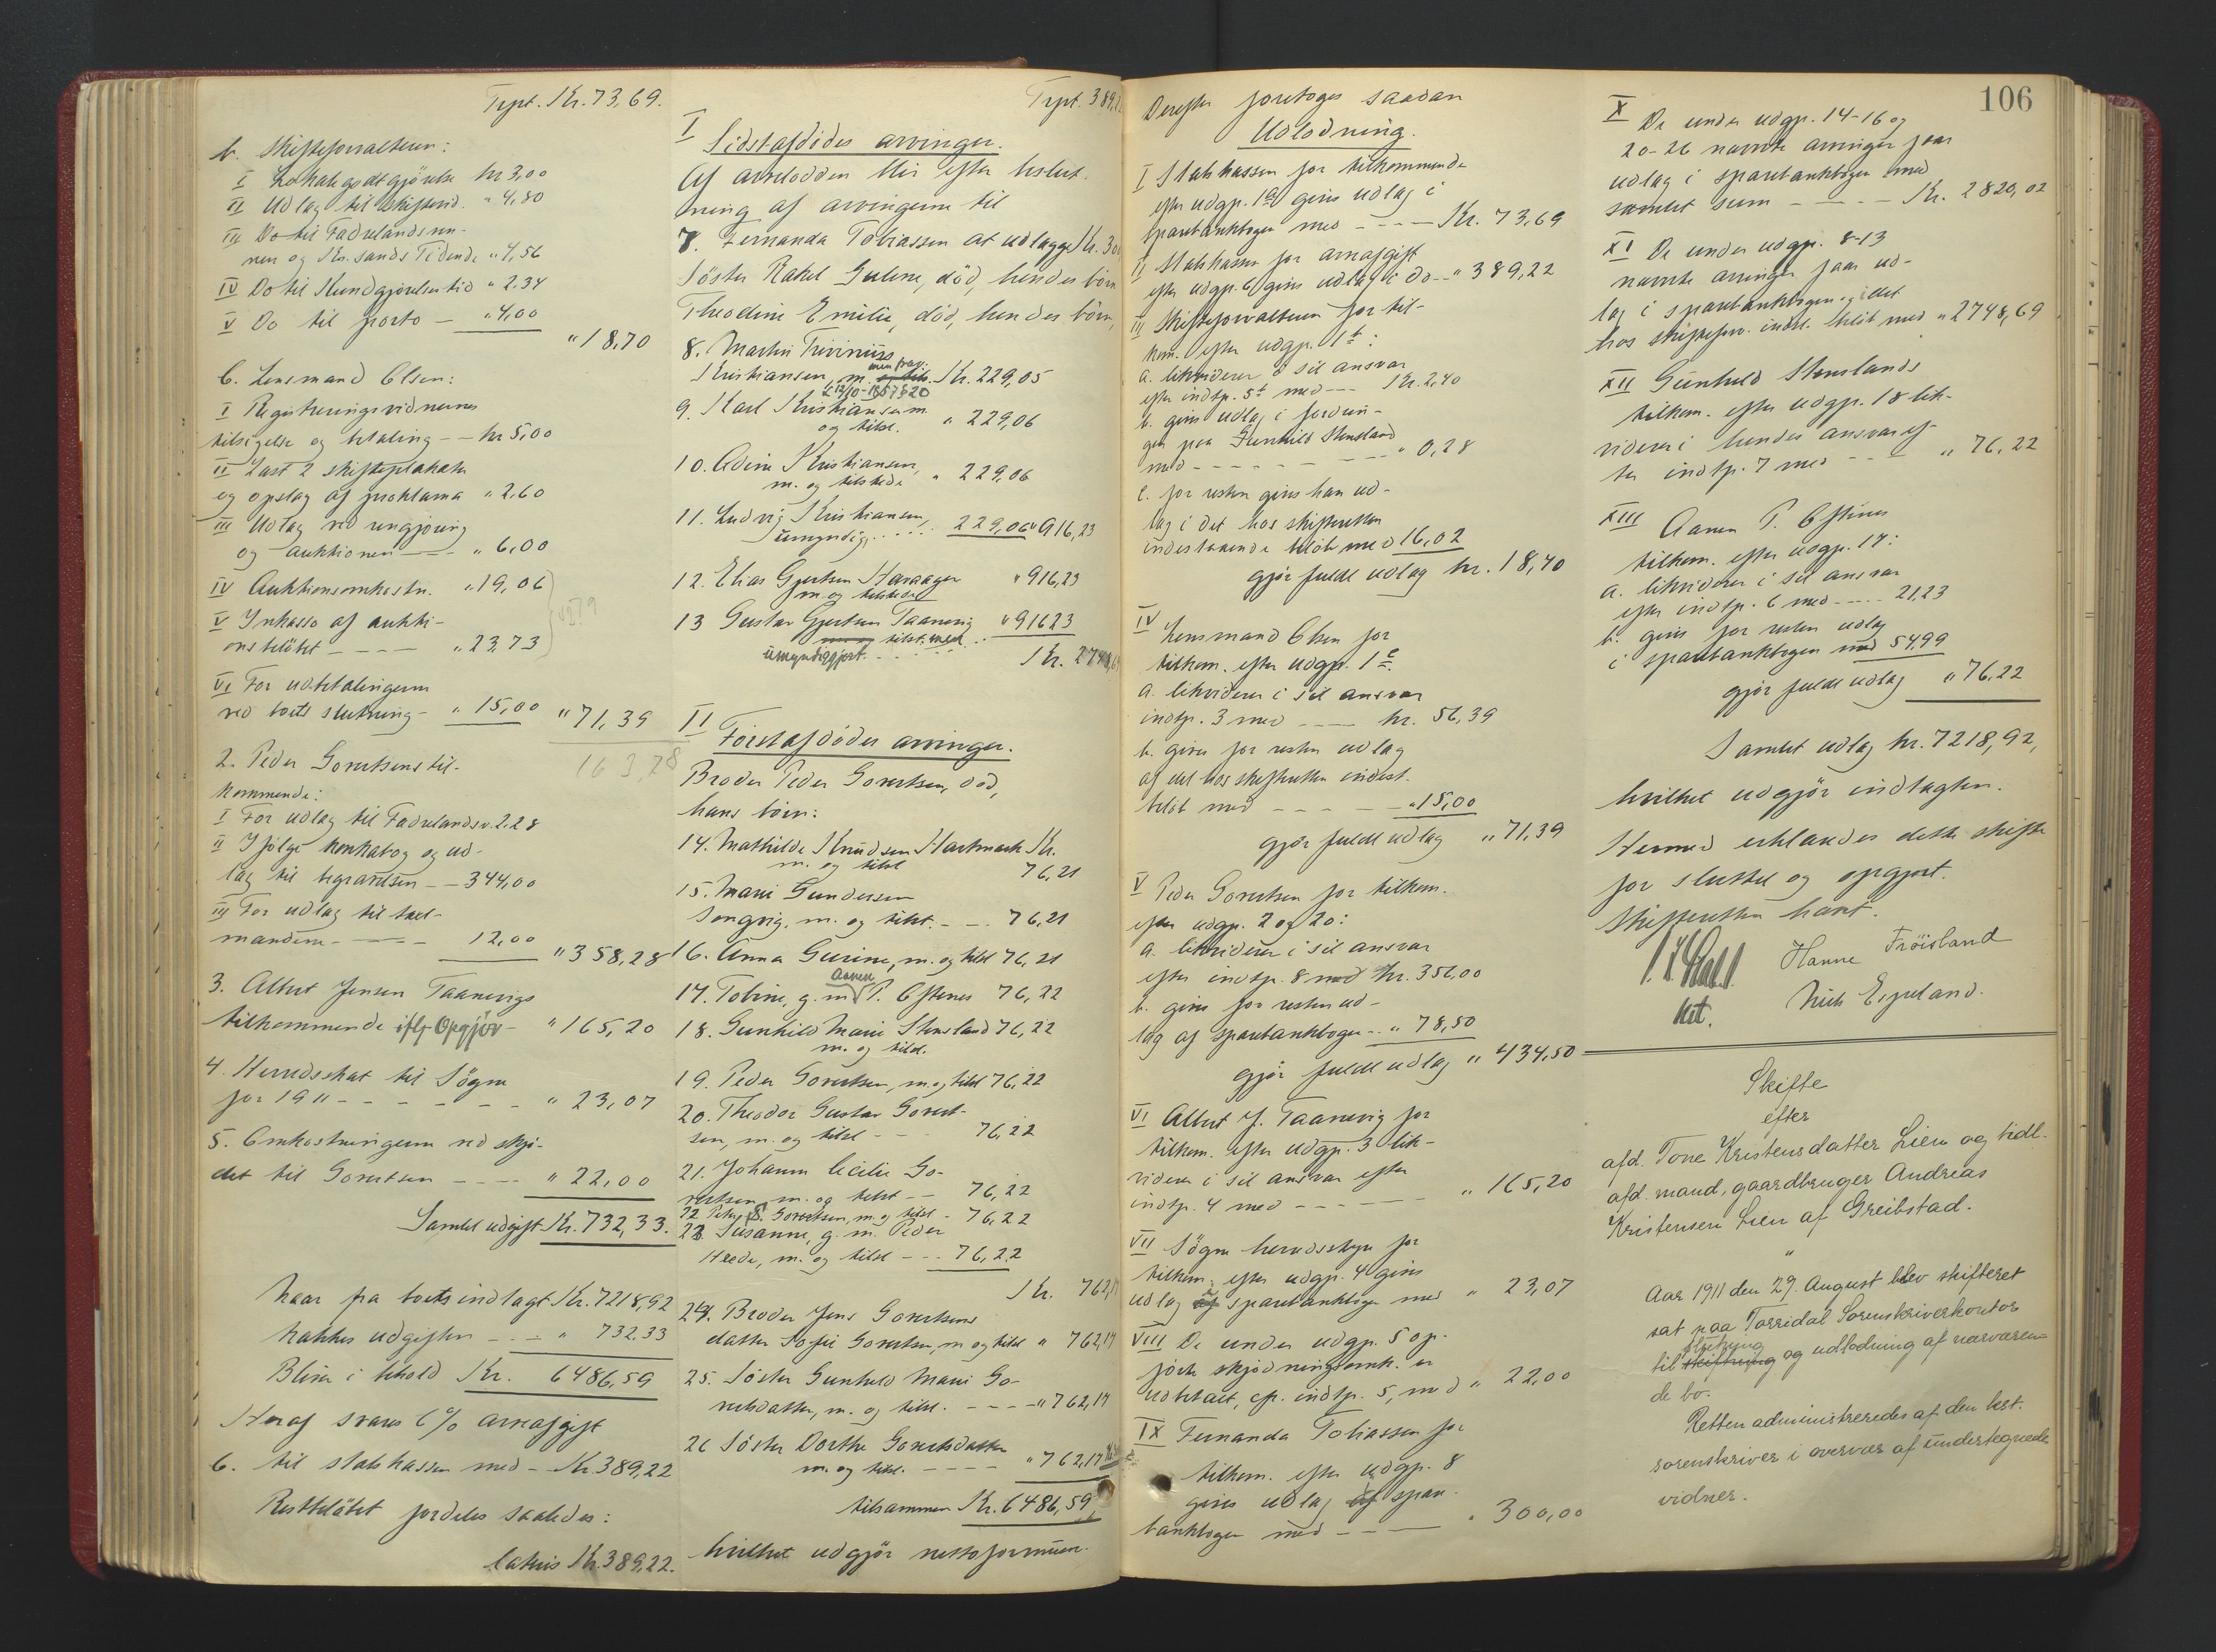 Trpt. Kr. 73,69.
b. Skifteforvalteren:
I Lokalegodtgjörelse kr 3,00
II Udlag til skiftevid. " 4,80
III Do til Fædrelandsven-
nen og Kr.sands Tidende " 4,56
IV Do til Kundgjörelsestid " 2.34
V Do til porto — " 4,00
" 18,70
c. Lensmand Olsen:
I Registreringsvidnernes
tilsigelse og betaling — kr 5,00
II Læst 2 skifteplakater
og opslag af proklama " 2.60
III Udlæg ved rengjöring
og auktionen — " 6,00
IV Auktionsomkostn. " 19,06
V Inkasso af aukti-
onsbelöbet — — " 23,73
VI For udbetalingerne
ved boets slutning - " 15,00 " 71,39
163,78
2. Peder Govertsens til-
kommende:
I For udlæg til Fædrelandsv. 2.28
II Ifölge kontrabog og ud-
læg til begravelsen — 344,00
III For udlæg til skel-
mændene — — 12,00
" 358,28
3. Albert Jensen Taanevigs
tilkommende iflg. Opgjör - " 165,20
4. Herredsskat til Sögne
for 1911 - - - - - " 23,07
5. Omkostningerne ved skjö-
det til Govertsen - - - " 22,00
Samlet udgift Kr. 732,33.
Naar fra boets indtægt Kr. 7218,92
trækkes udgiften - - - " 732.33
Bliver i behold Kr. 6486,59
Heraf svares 6% arveafgift
6. til statskassen med - Kr. 389,22
Restbelöbet fordeles saaledes:
latus Kr. 389,22.
Trpt. 389,2
I
Sidstafdödes arvinger.
Af arvelodden blir efter beslut-
ning af arvingerne til
7. Fernanda Tobiassen at udlægge Kr. 300
Söster Rakel Guline, död, hendes börn
Theodine Emilie, död, hendes börn,
8. Martin Trivinius
Kristiansen, m. Kr. 229,05
9. Karl Kristiansen m
og tilst. " 229,06
10. Adine Kristiansen,
m. og tilstede " 229,06
11. Ludvig Kristiansen,
umyndig. . . . . 229,06 " 916,23
12. Elias Gjertsen Haraager
m. og tilstede " 916,23
13 Gustav Gjertsen Taanevig " 916 23
tilst. med
umyndiggjort. . . . .
Kr. 2748,69
II
Förstafdödes arvinger.
Broder Peder Govertsen, död,
hans börn:
14. Mathilde Knudsen Hartmark Kr.
m. og tilst 76,21
15. Marie Gundersen
Songvig, m. og tilst. - - 76,21
16. Anna Gurine, m. og tilst 76,21
17. Tobine, g. m. Aanen P. Oftenes 76,22
18. Gunhild Marie Stensland 76,22
m. og tilst.
19. Peder Govertsen, m. og tilst 76,22
20. Theodor Gustav Govert-
sen, m. og tilst - - 76,22
21. Johanne Cecilie Go-
vertsen, m. og tilst - - 76,22
22 Peter S. Govertsen, m. og tilst - 76,22
23. Susanne, g. m. Peder
Heede, m. og tilst - - - 76,22
Kr. 762,17
24. Broder Jens Govertsens
datter Sofie Govertsen, m og tilst " 762,17
25. Söster Gunhild Marie Go-
vertsdatter, m. og tilst. - - - " 762,17
26 Söster Dorthe Govertsdatter
m. og tilst. - - - - " 762,17
tilsammen Kr. 6486,59,
hvilket udgjör nettoformuen.
106
Derefter foretoges saadan
Udlodning.
I Statskassen for tilkommende
efter udgp. 1a gives udlæg i
sparebankbogen med - - - Kr. 73,69
II Statskassen for arveafgift
efter udgp. 6 gives udlæg i do - " 389,22
III Skifteforvalteren for til-
kom. efter udgp. 1b:
a. likviderer i sit ansvar
efter indtp. 5t med - - - Kr. 2,40
b. gives udlæg i fordrin-
gen paa Gunhild Stensland
med - - - - - - - " 0,28
c. for resten gives han ud-
læg i det hos skifteretten
indestaaende belöb med 16,02
gjör fuldt udlæg kr. 18,70
IV
Lensmand Olsen for
tilkom. efter udgp. 1c.
a. likviderer i sit ansvar
indtp. 3 med - - - kr. 56,39
b. gives for resten udlæg
af det hos skifteretten indest.
belöb med - - - - " 15,00
gjör fuldt udlæg " 71,39
V Peder Govertsen for tilkom.
efter udgp. 2 og 20:
a. likviderer i sit ansvar
efter indtp. 8 med kr. 356,00
b. gives for resten ud-
læg af sparebankbogen - " 78,50
gjör fuldt udlæg " 434,50
VI Albert J. Taanevig for
tilkom. efter udgp. 3 lik-
viderer i sit ansvar efter
indtp. 4 med - - - - " 165,20
VII Sögne herredsstyre for
tilkom. efter udgp. 4 gives
udlæg af sparebankbogen med " 23,07
VIII De under udgp. 5 op-
förte skjödningsomk. er
udbetalt, cfr. indtp. 5, med " 22,00
IX Fernanda Tobiassen for
tilkom. efter udgp. 8
gives udlæg af spare-
bankbogen med - - - " 300,00
X De under udgp. 14-16 og
20-26 nævnte arvinger faar
udlæg i sparebankbogen med
samlet sum - - - - Kr. 2820,02
XI De under udgp. 8-13
nævnte arvinger faar ud-
læg i sparebankbogen og i det
hos skiftefor. indst. belöb med " 2748,69
XII Gunhild Stenslands
tilkom. efter udgp. 18 lik-
videres i hendes ansvar ef-
ter indtp. 7 med - - - " 76,22
XIII Aanen P. Oftenes
tilkom. efter udgp. 17:
a. likviderer i sit ansvar
efter indtp. 6 med - - - 21,23
b. gives for resten udlæg
i sparebankbogen med 54,99
gjör fuldt udlæg " 76,22
Samlet udlæg kr. 7218,92,
hvilket udgjör indtægten.
Hermed erklæredes dette skifte
for sluttet og opgjort.
Skifteretten hævet.
Hanne Fröisland
kst. Nich Espeland.
Skifte
efter
afd. Tone Kristensdatter Lien og tidl.
afd. mand, gaardbruger Andreas
Kristensen Lien af Greibstad.
"
Aar 1911 den 29. August blev skifteret
sat paa Torridal Sorenskriverkontor
til slutning og udlodning af nærværen-
de bo.
Retten administreredes af den kst.
sorenskriver i overvær af undertegnede
vidner.